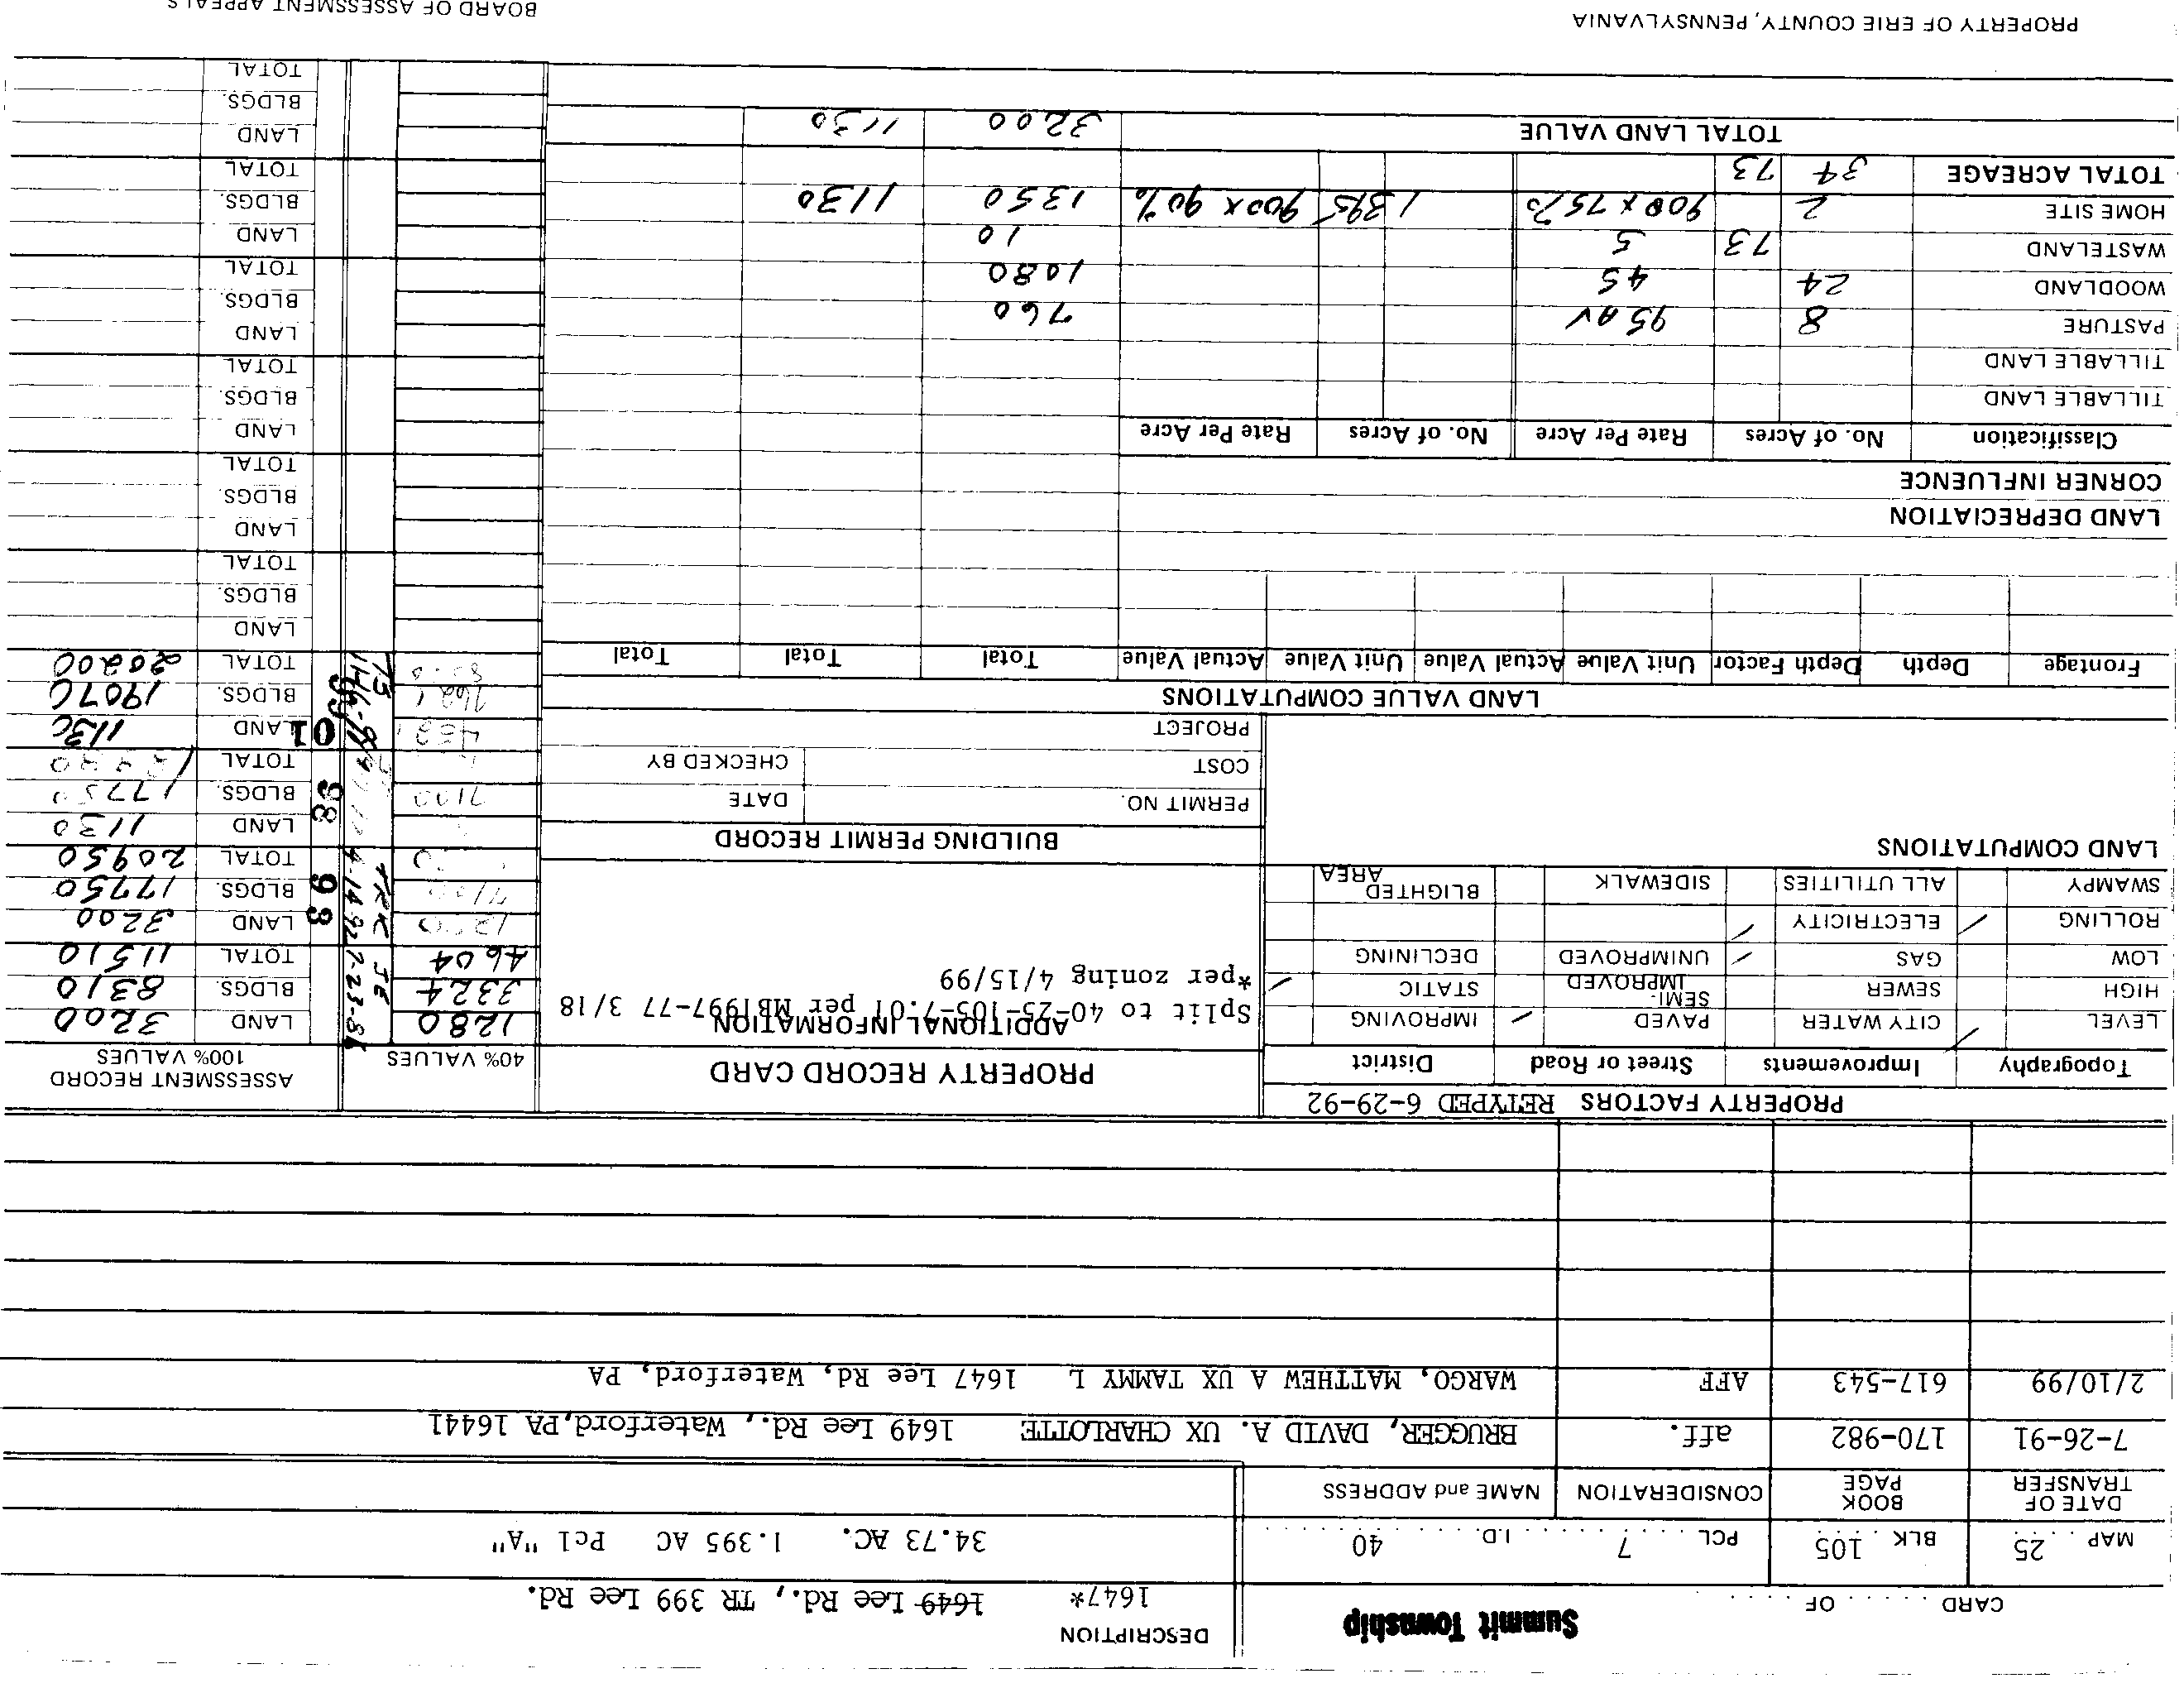 CARD ..... OF .....
Summit Township
DESCRIPTION
1647* 1649 Lee Rd., TR 399 Lee Rd.
MAP 25 BLK 105 PCL 7 I.D. 40
34.73 AC. 1.395 AC Pcl "A"
DATE OF TRANSFER BOOK PAGE CONSIDERATION NAME and ADDRESS
7-26-91 170-982 aff. BRUGGER, DAVID A. UX CHARLOTTE 1649 Lee Rd., Waterford,PA 16441
2/10/99 617-543 AFF WARGO, MATTHEW A UX TAMMY L 1647 Lee Rd, Waterford, PA
PROPERTY FACTORS RETYPED 6-29-92
Topography Improvements Street or Road District
LEVEL CITY WATER ✓ PAVED IMPROVING ✓
HIGH SEWER SEMI-IMPROVED STATIC ✓
LOW GAS UNIMPROVED ✓ DECLINING
ROLLING ✓ ELECTRICITY ✓
SWAMPY ALL UTILITIES SIDEWALK BLIGHTED AREA
LAND COMPUTATIONS
PROPERTY RECORD CARD
ADDITIONAL INFORMATION
Split to 40-25-105-7.01 per MB1997-77 3/18
*per zoning 4/15/99
BUILDING PERMIT RECORD
PERMIT NO. DATE
COST CHECKED BY
PROJECT
40% VALUES
ASSESSMENT RECORD
100% VALUES
1280 LAND 3200
3324 BLDGS. 8310
4604 TOTAL 11510
7-23-86 JE
93
LAND 3200
BLDGS. 17750
TOTAL 20950
4-14-92 TRK
98
LAND 1130
7100 BLDGS. 17750
TOTAL
01
LAND 1130
BLDGS. 19070
TOTAL 20200
LAND VALUE COMPUTATIONS
Frontage Depth Depth Factor Unit Value Actual Value Unit Value Actual Value Total Total Total
LAND
BLDGS.
TOTAL
LAND DEPRECIATION
LAND
CORNER INFLUENCE
BLDGS.
TOTAL
Classification No. of Acres Rate Per Acre No. of Acres Rate Per Acre
LAND
TILLABLE LAND
BLDGS.
TILLABLE LAND
TOTAL
PASTURE 8 95 AV 760
LAND
WOODLAND 24 45 1080
BLDGS.
WASTELAND 73 5 10
TOTAL
LAND
HOME SITE 2 900 x 75% 1 395 900 x 90% 1350 1130
BLDGS.
TOTAL ACREAGE 34 73
TOTAL
TOTAL LAND VALUE 3200 1130
LAND
BLDGS.
TOTAL
PROPERTY OF ERIE COUNTY, PENNSYLVANIA
BOARD OF ASSESSMENT APPEALS